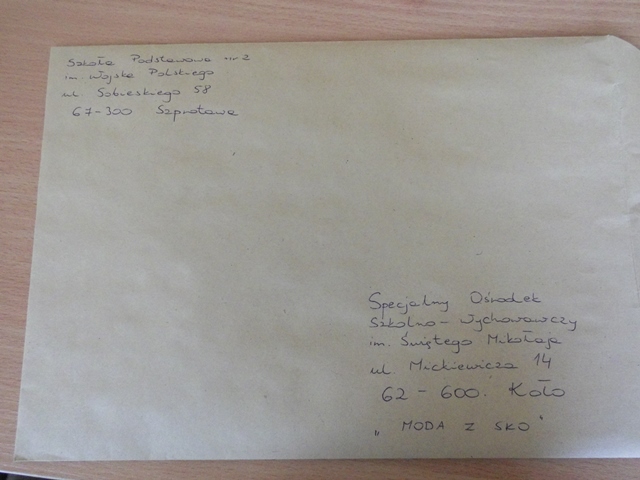 Szkoła Podstawowa nr 2
im. Wojska Polskiego
ul. Sobieskiego 58
67-300 Szprotawa
Specjalny Ośrodek
Szkolno-Wychowawczy
im. Świętego Mikołaja
ul. Mickiewicza 14
62-600. Koło
„MODA Z SKO"